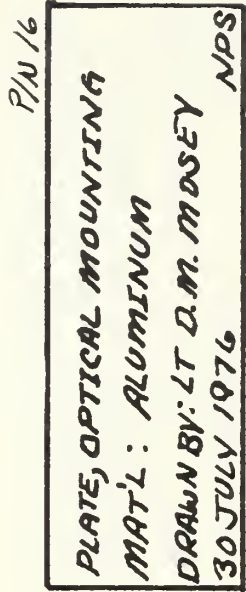 P/N 16
PLATE, OPTICAL MOUNTING
MAT'L: ALUMINUM
DRAWN BY: LT D.M. MOSEY
30 JULY 1976 NPS